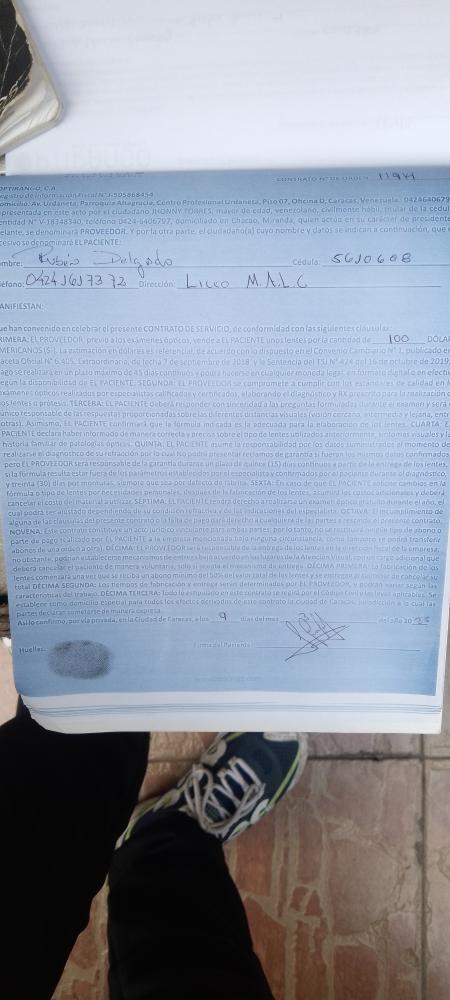 CONTRATO N° DE ORDEN 11941
OPTIRANGO, C.A
Registro de Información Fiscal N° J-505868454
Domicilio: Av. Urdaneta, Parroquia Altagracia, Centro Profesional Urdaneta, Piso 07, Oficina D, Caracas, Venezuela. 0424640679
presentada en este acto por el ciudadano JHONNY TORRES, mayor de edad, venezolano, civilmente hábil, titular de la cédul
entidad N° V-18348340, teléfono 0424-6406797, domiciliado en Chacao, Miranda, quien actúa en su carácter de presidente
elante, se denominará PROVEEDOR. Y por la otra parte, el ciudadano(a) cuyo nombre y datos se indican a continuación, que e
cesivo se denominará EL PACIENTE:
ombre: Rubén Delgado Cédula: 5610608
léfono: 04241617372 Dirección: Liceo M.A.L.C
ANIFIESTAN:
ue han convenido en celebrar el presente CONTRATO DE SERVICIO, de conformidad con las siguientes cláusulas:
RIMERA: EL PROVEEDOR, previo a los exámenes ópticos, vende a EL PACIENTE unos lentes por la cantidad de 100 DÓLAR
MERICANOS ($-). La estimación en dólares es referencial, de acuerdo con lo dispuesto en el Convenio Cambiario N° 1, publicado en
aceta Oficial N° 6.405, Extraordinaria, de fecha 7 de septiembre de 2018, y la Sentencia del TSJ N° 424 del 16 de octubre de 2019,
ago se realizará en un plazo máximo de 45 días continuos y podrá hacerse en cualquier moneda legal, en formato digital o en efectiv
egún la disponibilidad de EL PACIENTE. SEGUNDA: EL PROVEEDOR se compromete a cumplir con los estándares de calidad en l
exámenes ópticos realizados por especialistas calificados y certificados, elaborando el diagnóstico y RX prescrito para la realización d
os lentes o prótesis. TERCERA: EL PACIENTE deberá responder con sinceridad a las preguntas formuladas durante el examen y será e
único responsable de las respuestas proporcionadas sobre las diferentes distancias visuales (visión próxima, intermedia y lejana, entr
otras). Asimismo, EL PACIENTE confirmará que la fórmula indicada es la adecuada para la elaboración de los lentes. CUARTA: E
PACIENTE declara haber informado de manera correcta y precisa sobre el tipo de lentes utilizados anteriormente, síntomas visuales y l
historia familiar de patologías ópticas. EL PACIENTE asume la responsabilidad por los datos suministrados al momento d
realizarse el diagnóstico de su refracción por lo cual No podrá presentar reclamos de garantía si fueron los mismos datos confirmado
pero EL PROVEEDOR será responsable de la garantía durante un plazo de quince (15) días continuos a partir de la entrega de los lentes,
si la fórmula resulta estar fuera de los parámetros establecidos por el especialista y confirmados por el paciente durante el diagnóstico,
y treinta (30) días por monturas, siempre que sea por defecto de fábrica. SEXTA: En caso de que EL PACIENTE
fórmula o tipo de lentes por necesidades personales, después de la fabricación de los lentes, asumirá los costos adicionales y deberá
cancelar el costo del material a utilizar. SEPTIMA: EL PACIENTE tendrá derecho a realizarse un examen óptico gratuito durante el año, el
cual podrá ser ajustado dependiendo de su condición refractiva y de las indicaciones del especialista. OCTAVA: El incumplimiento de
alguna de las cláusulas del presente contrato o la falta de pago dará derecho a cualquiera de las partes a rescindir el presente contrato.
NOVENA: Este contrato constituye un acto jurídico vinculante para ambas partes; por lo tanto, no se realizará ningún tipo de abono o
parte de pago realizado por EL PACIENTE a la empresa mencionada bajo ninguna circunstancia, como tampoco se podrá transferir
abonos de una orden a otra). DÉCIMA: EL PROVEEDOR será responsable de la entrega de los lentes en la dirección fiscal de la empresa,
no obstante, podrían establecerse mecanismos de entrega bajo acuerdo en las hojas de la Atención Visual, con un cargo adicional que
deberá cancelar el paciente de manera voluntaria, solo si acepta el mecanismo de entrega. DÉCIMA PRIMERA: La fabricación de los
lentes comenzará una vez que se reciba un abono mínimo del 50% del valor total de los lentes y se entregan al culminar de cancelar su
total DÉCIMA SEGUNDA: Los tiempos de fabricación y entrega serán determinados por EL PROVEEDOR, y podrán variar según las
características del trabajo. DÉCIMA TERCERA: Todo lo estipulado en este contrato se regirá por el Código Civil y las leyes aplicables. Se
establece como domicilio especial para todos los efectos derivados de este contrato la ciudad de Caracas, Jurisdicción a la cual las
partes declaran someterse de manera expresa.
Así lo confirmo, por vía privada, en la Ciudad de Caracas, a los 9 días del mes del año 20
Huellas: Firma del Paciente: